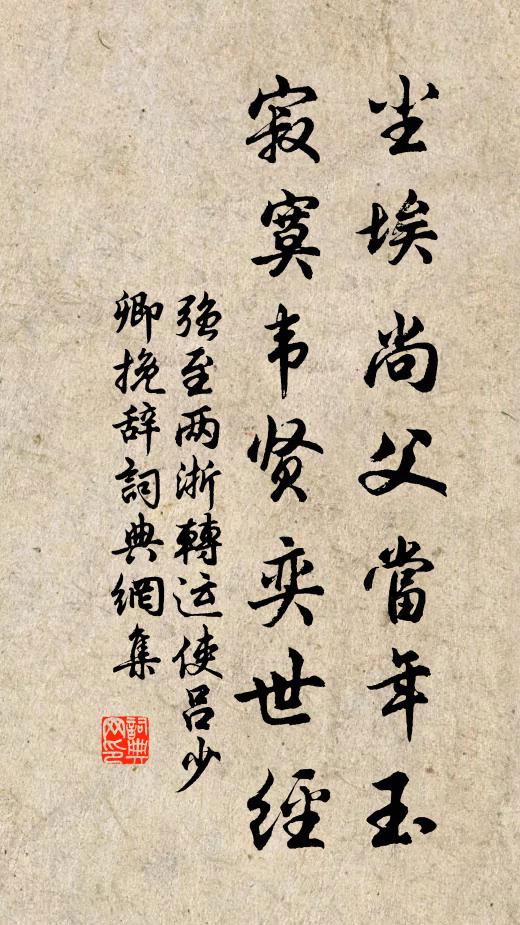 尘埃尚父當年玉
寂寞韦贤奕世經
强至两浙轉运使吕少
卿挽辞詞典網集
詞典网印